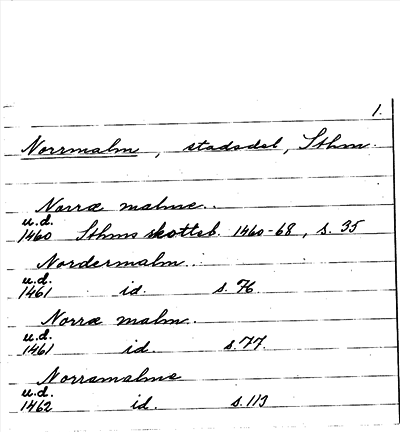 1.
Norrmalm, stadsdel, Sthm.
Norræ malme.
u.d.
1460 Sthms skotteb. 1460-68, s. 35
Nordermalm.
u.d.
1461 id. s. 76
Norræ malm.
u.d.
1461 id. s. 77.
Norramalme
u.d.
1462 id. s. 113